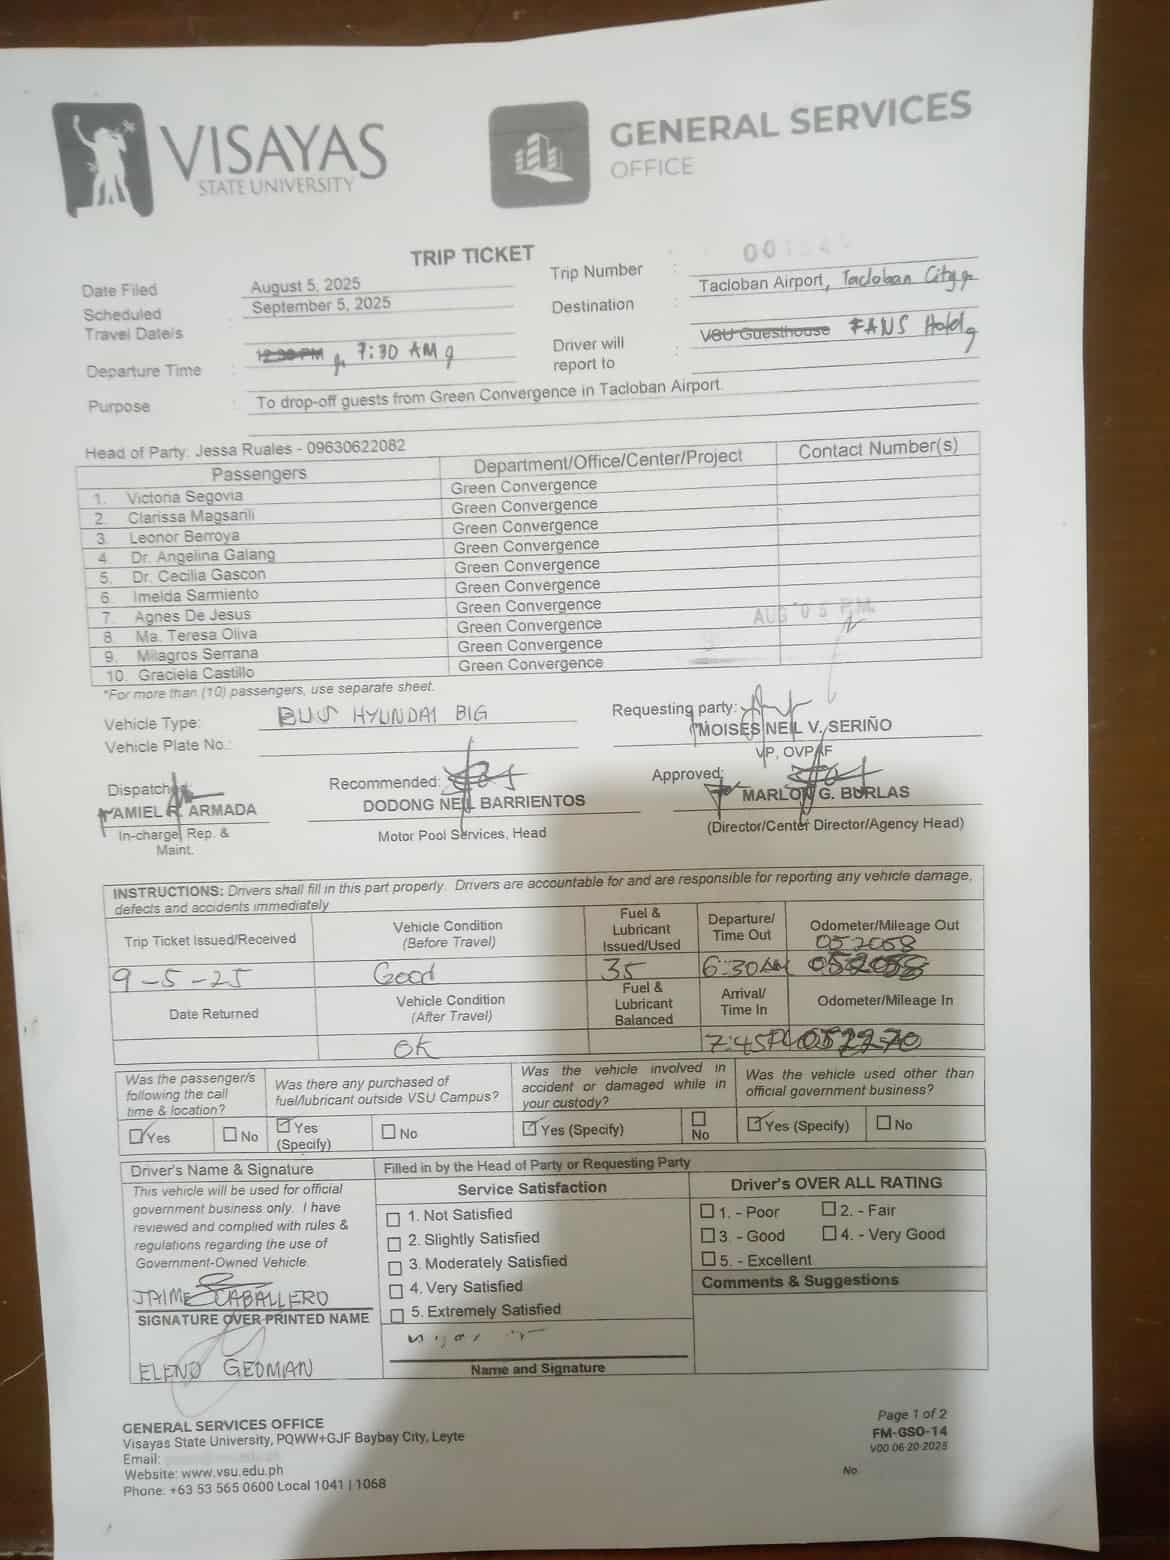 VISAYAS
STATE UNIVERSITY
GENERAL SERVICES
OFFICE
TRIP TICKET
Date Filed : August 5, 2025
Scheduled Travel Date/s : September 5, 2025
Departure Time : 12:30 PM 7:30 AM
Trip Number :
Destination : Tacloban Airport, Tacloban City
Driver will report to : VSU Guesthouse FANS Holdg
Purpose : To drop-off guests from Green Convergence in Tacloban Airport.
Head of Party: Jessa Ruales - 09630622082
Passengers Department/Office/Center/Project Contact Number(s)
1. Victoria Segovia Green Convergence
2. Clarissa Magsarili Green Convergence
3. Leonor Berroya Green Convergence
4. Dr. Angelina Galang Green Convergence
5. Dr. Cecilia Gascon Green Convergence
6. Imelda Sarmiento Green Convergence
7. Agnes De Jesus Green Convergence
8. Ma. Teresa Oliva Green Convergence
9. Milagros Serrana Green Convergence
10. Graciela Castillo Green Convergence
AUG 05 P.M.
*For more than (10) passengers, use separate sheet.
Vehicle Type: BUS HYUNDAI BIG
Vehicle Plate No.:
Requesting party:
MOISES NEIL V. SERIÑO
VP, OVPAF
Dispatch
YAMIEL R. ARMADA
In-charge, Rep. &
Maint.
Recommended:
DODONG NEIL BARRIENTOS
Motor Pool Services, Head
Approved:
MARLON G. BURLAS
(Director/Center Director/Agency Head)
INSTRUCTIONS: Drivers shall fill in this part properly. Drivers are accountable for and are responsible for reporting any vehicle damage,
defects and accidents immediately
Trip Ticket Issued/Received Vehicle Condition (Before Travel) Fuel & Lubricant Issued/Used Departure/ Time Out Odometer/Mileage Out
052058
9-5-25 Good 35 6:30AM
Date Returned Vehicle Condition (After Travel) Fuel & Lubricant Balanced Arrival/ Time In Odometer/Mileage In
OK 7:45P 052270
Was the passenger/s following the call time & location?
Was there any purchased of fuel/lubricant outside VSU Campus?
Was the vehicle involved in accident or damaged while in your custody?
Was the vehicle used other than official government business?
Yes No Yes (Specify) No Yes (Specify) No Yes (Specify) No
Driver's Name & Signature
This vehicle will be used for official
government business only. I have
reviewed and complied with rules &
regulations regarding the use of
Government-Owned Vehicle.
JAIME CABALLERO
SIGNATURE OVER PRINTED NAME
ELENO GEOMAN
Filled in by the Head of Party or Requesting Party
Service Satisfaction
1. Not Satisfied
2. Slightly Satisfied
3. Moderately Satisfied
4. Very Satisfied
5. Extremely Satisfied
Name and Signature
Driver's OVER ALL RATING
1. - Poor 2. - Fair
3. - Good 4. - Very Good
5. - Excellent
Comments & Suggestions
GENERAL SERVICES OFFICE
Visayas State University, PQWW+GJF Baybay City, Leyte
Email:
Website: www.vsu.edu.ph
Phone: +63 53 565 0600 Local 1041 | 1068
Page 1 of 2
FM-GSO-14
V00 06-20-2025
No